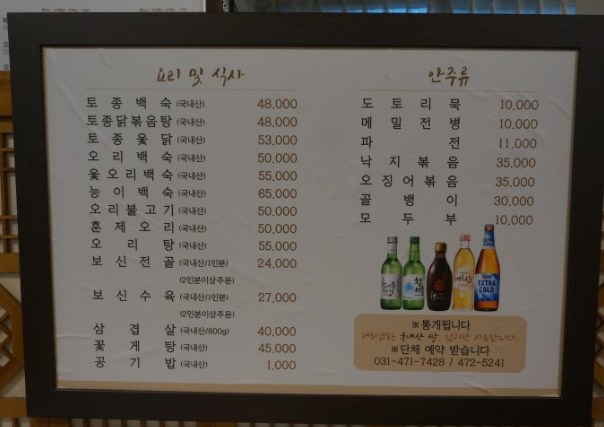 요리 및 식사
토종백숙 (국내산) 48,000
토종닭볶음탕 (국내산) 48,000
토종옻닭 (국내산) 53,000
오리백숙 (국내산) 50,000
옻오리백숙 (국내산) 55,000
능이백숙 (국내산) 65,000
오리불고기 (국내산) 50,000
훈제오리 (국내산) 50,000
오리탕 (국내산) 55,000
보신전골 (국내산/1인분) 24,000
(2인분이상주문)
보신수육 (국내산/1인분) 27,000
(2인분이상주문)
삼겹살 (국내산/600g) 40,000
꽃게탕 (국내산) 45,000
공기밥 (국내산) 1,000
안주류
도토리묵 10,000
메밀전병 10,000
파전 11,000
낙지볶음 35,000
오징어볶음 35,000
골뱅이 30,000
모두부 10,000
EXTRA COLD
※통개됩니다
저희업소는 국내산 쌀, 김치만 사용합니다.
※단체 예약 받습니다
031-471-7428 / 472-5241